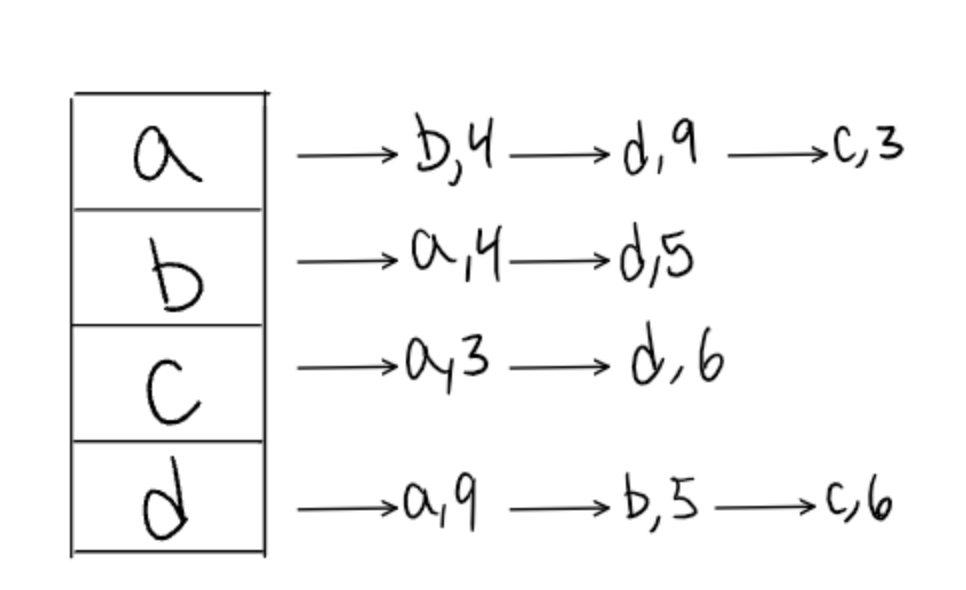 a → b,4 → d,9 → c,3
b → a,4 → d,5
c → a,3 → d,6
d → a,9 → b,5 → c,6